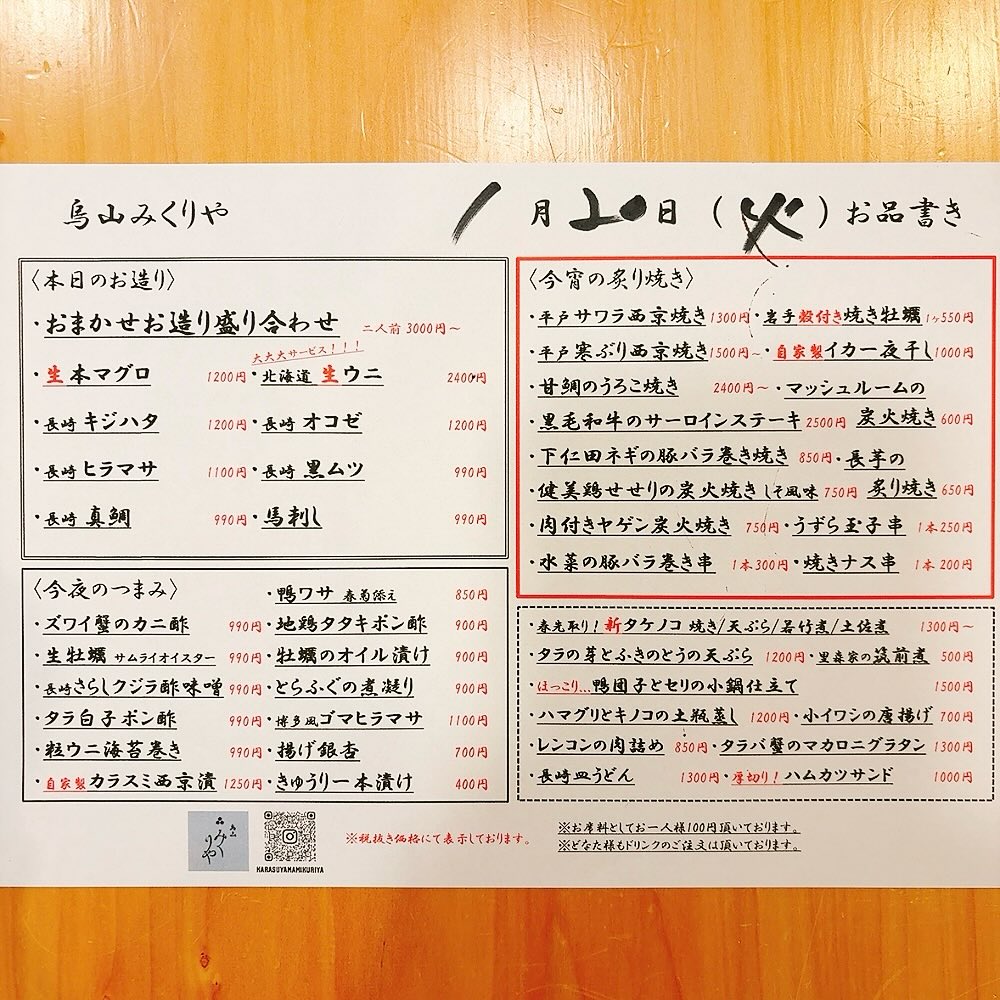 烏山みくりや
1月20日(火)お品書き
〈本日のお造り〉
・おまかせお造り盛り合わせ 二人前 3000円～
大大大サービス!!!
・生本マグロ 1200円・北海道 生ウニ 2400円
・長崎 キジハタ 1200円・長崎 オコゼ 1200円
・長崎 ヒラマサ 1100円・長崎 黒ムツ 990円
・長崎 真鯛 990円・馬刺し 990円
〈今夜のつまみ〉 ・鴨ワサ 春菊添え 850円
・ズワイ蟹のカニ酢 990円・地鶏タタキポン酢 900円
・生牡蠣 サムライオイスター 990円・牡蠣のオイル漬け 900円
・長崎さらしクジラ酢味噌 990円・とらふぐの煮凝り 900円
・タラ白子ポン酢 990円・博多風ゴマヒラマサ 1100円
・粒ウニ海苔巻き 990円・揚げ銀杏 700円
・自家製カラスミ西京漬 1250円・きゅうり一本漬け 400円
〈今宵の炙り焼き〉
・平戸サワラ西京焼き 1300円・岩手殻付き焼き牡蠣 1ヶ550円
・平戸寒ぶり西京焼き 1500円～・自家製イカ一夜干し 1000円
・甘鯛のうろこ焼き 2400円～・マッシュルームの
・黒毛和牛のサーロインステーキ 2500円 炭火焼き 600円
・下仁田ネギの豚バラ巻き焼き 850円・長芋の
・健美鶏せせりの炭火焼き しそ風味 750円 炙り焼き 650円
・肉付きヤゲン炭火焼き 750円・うずら玉子串 1本250円
・水菜の豚バラ巻き串 1本300円・焼きナス串 1本200円
・春先取り!新タケノコ 焼き/天ぷら/若竹煮/土佐煮 1300円～
・タラの芽とふきのとうの天ぷら 1200円・里森家の筑前煮 500円
・ほっこり…鴨団子とセリの小鍋仕立て 1500円
・ハマグリとキノコの土瓶蒸し 1200円・小イワシの唐揚げ 700円
・レンコンの肉詰め 850円・タラバ蟹のマカロニグラタン 1300円
・長崎皿うどん 1300円・厚切り!ハムカツサンド 1000円
烏山みくりや
KARASUYAMAMIKURIYA
※税抜き価格にて表示しております。
※お席料としてお一人様100円頂いております。
※どなた様もドリンクのご注文は頂いております。